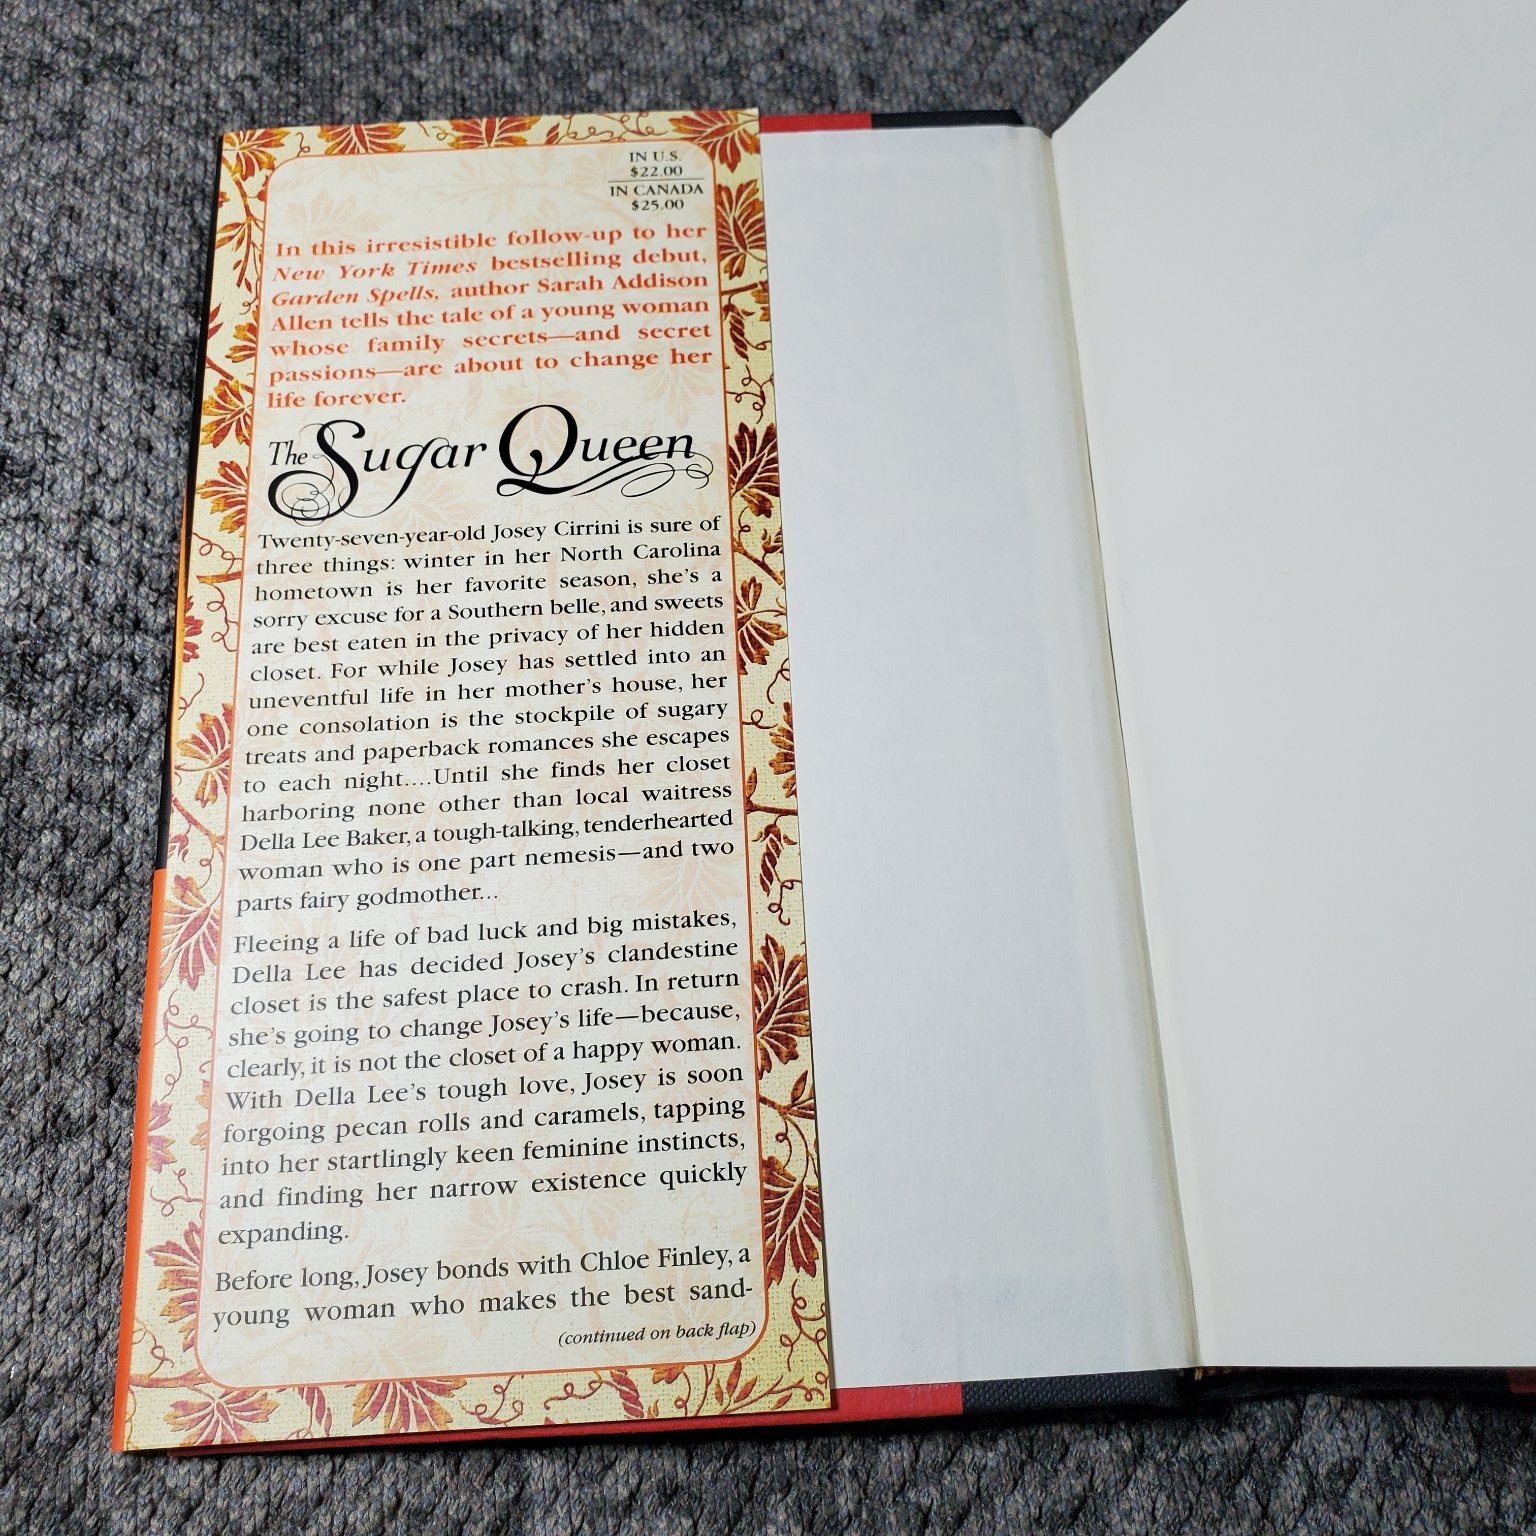 IN U.S.
$22.00
IN CANADA
$25.00
In this irresistible follow-up to her
New York Times bestselling debut,
Garden Spells, author Sarah Addison
Allen tells the tale of a young woman
whose family secrets—and secret
passions—are about to change her
life forever.
The Sugar Queen
Twenty-seven-year-old Josey Cirrini is sure of
three things: winter in her North Carolina
hometown is her favorite season, she's a
sorry excuse for a Southern belle, and sweets
are best eaten in the privacy of her hidden
closet. For while Josey has settled into an
uneventful life in her mother's house, her
one consolation is the stockpile of sugary
treats and paperback romances she escapes
to each night....Until she finds her closet
harboring none other than local waitress
Della Lee Baker, a tough-talking, tenderhearted
woman who is one part nemesis—and two
parts fairy godmother...
Fleeing a life of bad luck and big mistakes,
Della Lee has decided Josey's clandestine
closet is the safest place to crash. In return
she's going to change Josey's life—because,
clearly, it is not the closet of a happy woman.
With Della Lee's tough love, Josey is soon
forgoing pecan rolls and caramels, tapping
into her startlingly keen feminine instincts,
and finding her narrow existence quickly
expanding.
Before long, Josey bonds with Chloe Finley, a
young woman who makes the best sand-
(continued on back flap)